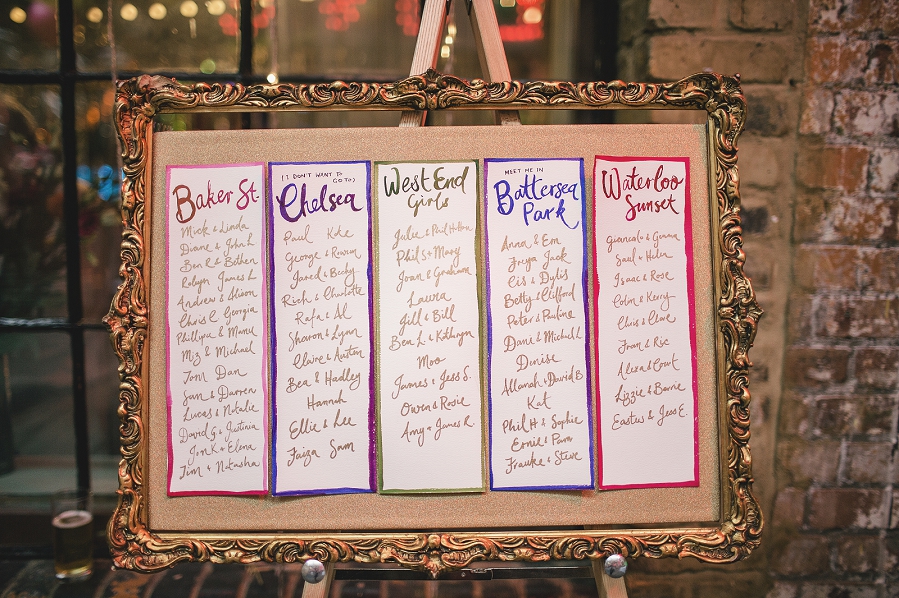 Baker St.
Mick & Linda
Diane & John L
Ben R & Bethen
Robyn James L
Andrew & Alison
Chris C Georgia
Phillipa & Manu
Miz & Michael
Tom Dan
Sam & Darren
Lucas & Natalie
David G & Justinia
Jon K & Elena
Jim & Natasha
(I DON'T WANT TO
GO TO)
Chelsea
Paul Kate
George & Rowen
Jared & Becky
Rich & Charlotte
Rafa & Al
Sharon & Lynn
Claire & Austen
Bea & Hadley
Hannah
Ellie & Lee
Faiza Sam
West End
Girls
Julie & Phil
Phil S & Mary
Joan & Graham
Laura
Jill & Bill
Ben L & Kathryn
Moo
James & Jess S.
Owen & Rosie
Amy & James R
MEET ME IN
Battersea
Park
Anna & Em
Freya Jack
Cis & Dylis
Betty & Clifford
Peter & Pauline
Dani & Michael L
Denise
Allanah & David B
Kat
Phil H & Sophie
Ernie & Pam
Frauke & Steve
Waterloo
Sunset
Giancarlo & Gemma
Saul & Helen
Isaac & Rose
Colm & Kerry
Chris & Clare
Fran & Ric
Alexa & Court
Lizzie & Barrie
Easties & Jess E